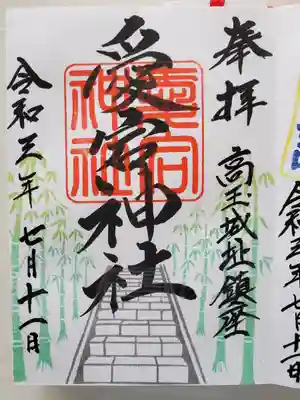 奉拝
高王城址鎮座
愛宕神社
愛宕
神社
令和三年七月十一日
令和三年七月十一日